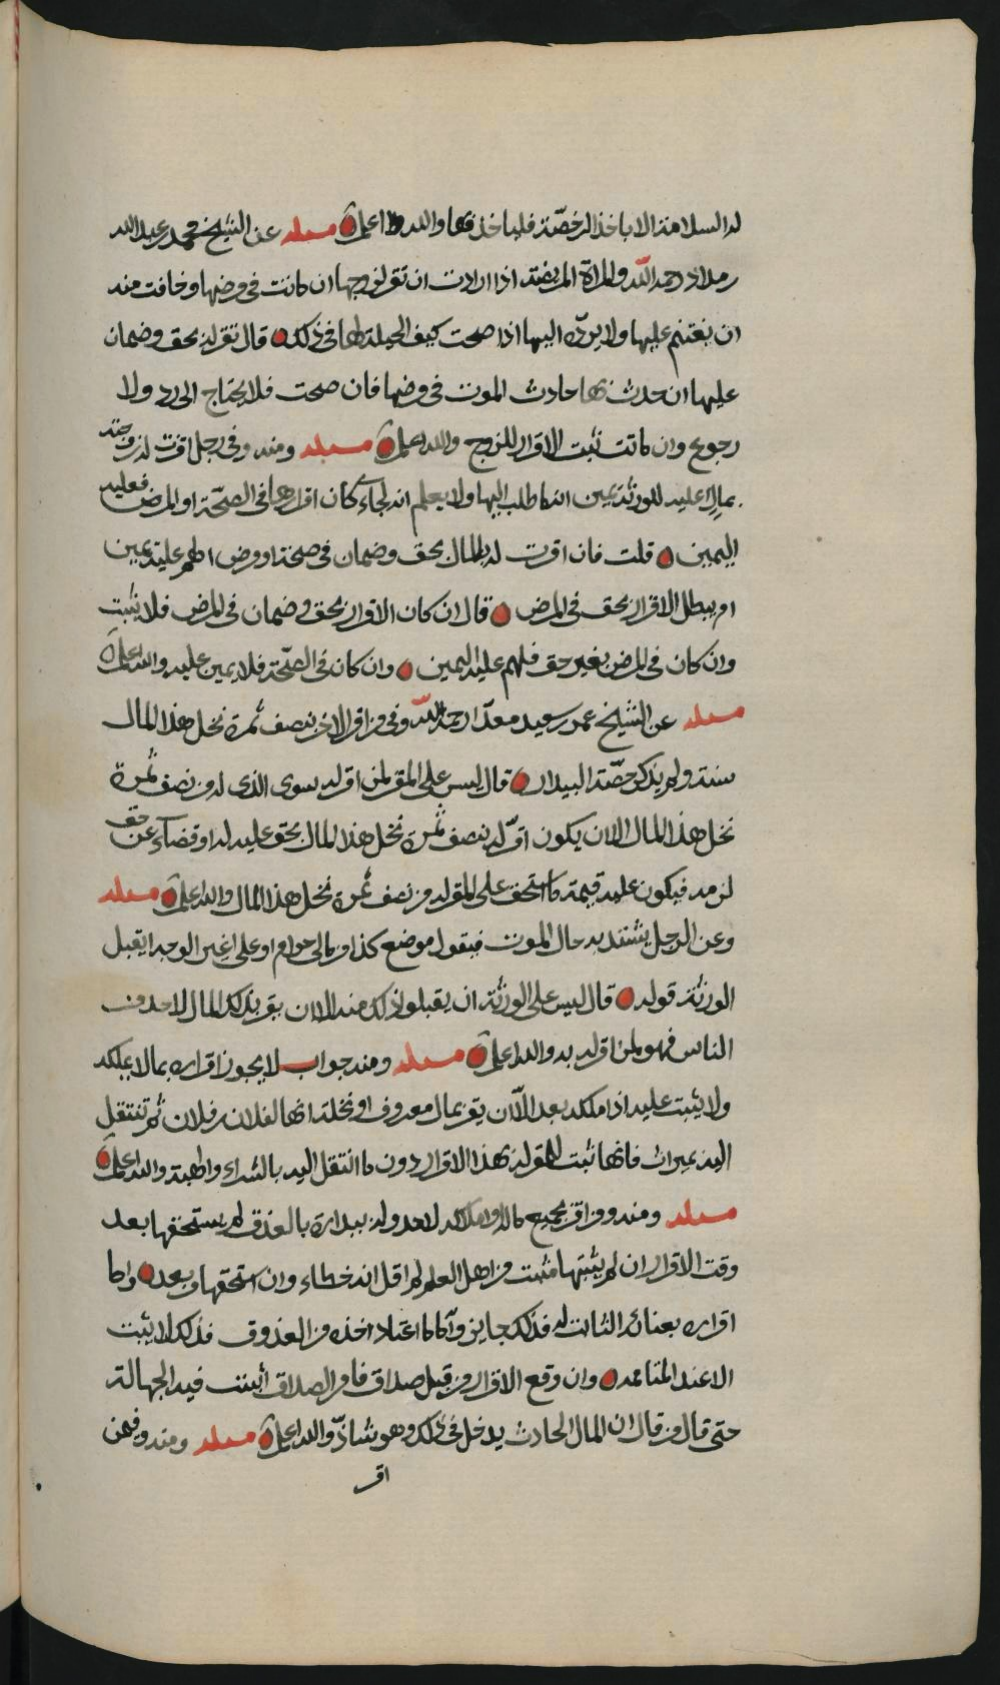 له السلامة الا باخذ الرخصة فلياخذ بها والله اعلم مسله عن الشيخ محمد بن عبدالله
بن مداد رحمه الله والمراة المريضة اذا ارادت ان تقر لزوجها ان كانت في مرضها وخافت منه
ان يغتنم عليها ولا يرده اليها اذا صحت كيف الحيلة لها في ذلك قال تقر له بحق وضمان
عليها ان حدث بها حادث الموت في مرضها فان صحت فلا يحتاج الى رد ولا
رجوع وان ماتت ثبت الاقرار للزوج والله اعلم مسئله ومنه وفي رجل اقرت له زوجته
بمال اعليه للورثة يمين انه ما طلب اليها ولا يعلم انه لجاء كان اقرارها في الصحة او المرض فعليه
اليمين قلت فان اقرت له بالمال بحق وضمان في صحة او مرض الهم عليه يمين
ام يبطل الاقرار بحق في المرض قال ان كان الاقرار بحق وضمان في المرض فلا يثبت
وان كان في المرض بغير حق فلهم عليه اليمين وان كان في الصحة فلا يمين عليه والله اعلم
مسله عن الشيخ عمر بن سعيد معد رحمه الله وفي من اقر لاخر بنصف ثمرة نخل هذا المال
سنة ولم يذكر حصة البيدار قال ليس على المقر لمن اقر له سوى الذي له من نصف ثمرة
نخل هذا المال الا ان يكون اقر له بنصف ثمرة نخل هذا المال بحق عليه له او قضاء عن حق
لزمه فيكون عليه قيمة ما استحق على المقر له من نصف ثمرة نخل هذا المال والله اعلم مسله
وعن الرجل يشتد به حال الموت فيقول موضع كذا من مالي حرام او على غير الوجه ايقبل
الورثة قوله قال ليس على الورثة ان يقبلوا ذلك منه الا ان يقر بذلك المال لاحد من
الناس فهو لمن اقر له به والله اعلم مسله ومنه جواب لا يجوز اقراره بما لا يملكه
ولا يثبت عليه اذا ملكه بعد الا ان يقر بمال معروف او نخلة انها لفلان بن فلان ثم تنتقل
اليه بميراث فانها تثبت للمقر له بهذا الاقرار دون ما انتقل اليه بالشراء والهبة والله اعلم
مسله ومنه ومن اقر بجميع ماله واملاكه لاحد وله ببدارة بالعذق لم يستحقها بعد
وقت الاقرار ان لم يثبتها مثبت من اهل العلم لم اقل انه خطاء وان استحقها من بعد واما
اقراره بعنائه الثابت له فذلك جايز واما ما اعتاد اخذه من العذوق فذلك لا يثبت
الا عند المتاممه وان وقع الاقرار من قبل صداق فامر الصداق اثبتت فيه الجهالة
حتى قال من قال ان المال الحادث يدخل في ذلك وهو شاذ والله اعلم مسله ومنه وفيمن
اقر